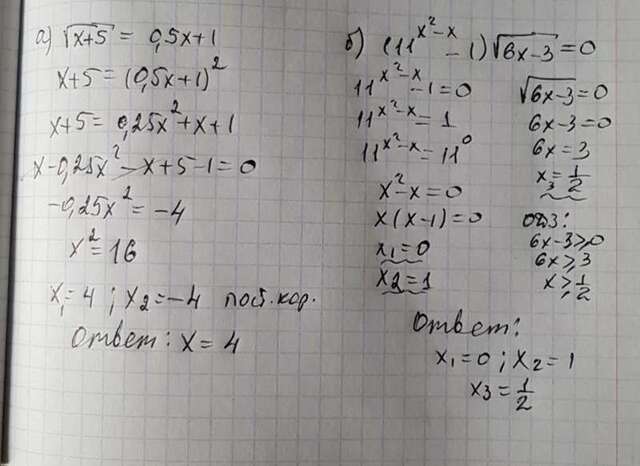 а) √(x+5) = 0,5x+1
x+5 = (0,5x+1)²
x+5 = 0,25x²+x+1
x-0,25x²-x+5-1=0
-0,25x² = -4
x² = 16
x₁=4 ; x₂=-4 пост.кор.
Ответ: x = 4
б) (11^(x²-x) - 1)√(6x-3) = 0
11^(x²-x) - 1 = 0
11^(x²-x) = 1
11^(x²-x) = 11⁰
x²-x = 0
x(x-1)=0
x₁=0
x₂=1
√(6x-3) = 0
6x-3=0
6x=3
x₃=1/2
одз:
6x-3≥0
6x≥3
x≥1/2
Ответ:
x₁=0 ; x₂=1
x₃=1/2